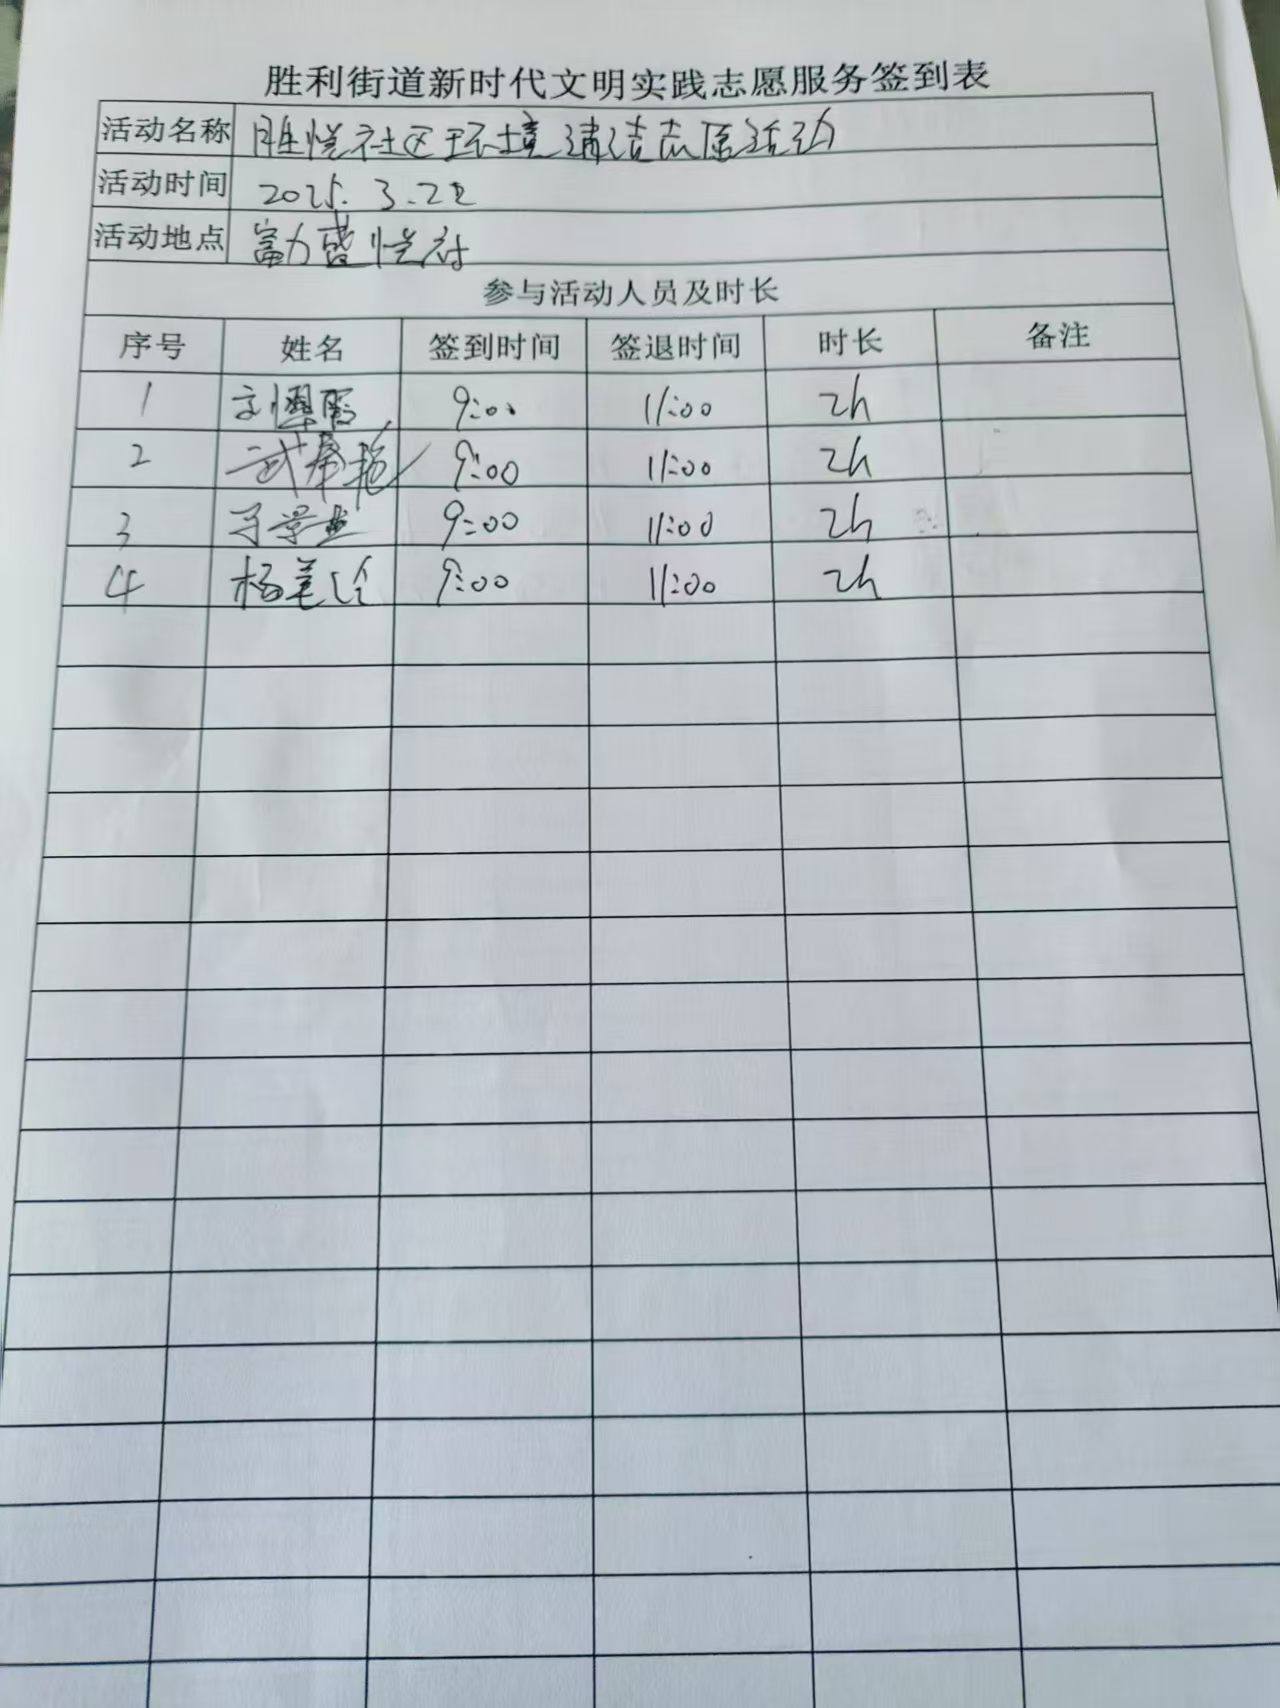 胜利街道新时代文明实践志愿服务签到表
活动名称 胜悦社区环境清洁志愿活动
活动时间 2025.3.22
活动地点 富力盛悦府
参与活动人员及时长
序号 姓名 签到时间 签退时间 时长 备注
1 刘 9:00 11:00 2h
2 武 艳 9:00 11:00 2h
3 9:00 11:00 2h
4 杨美玲 9:00 11:00 2h